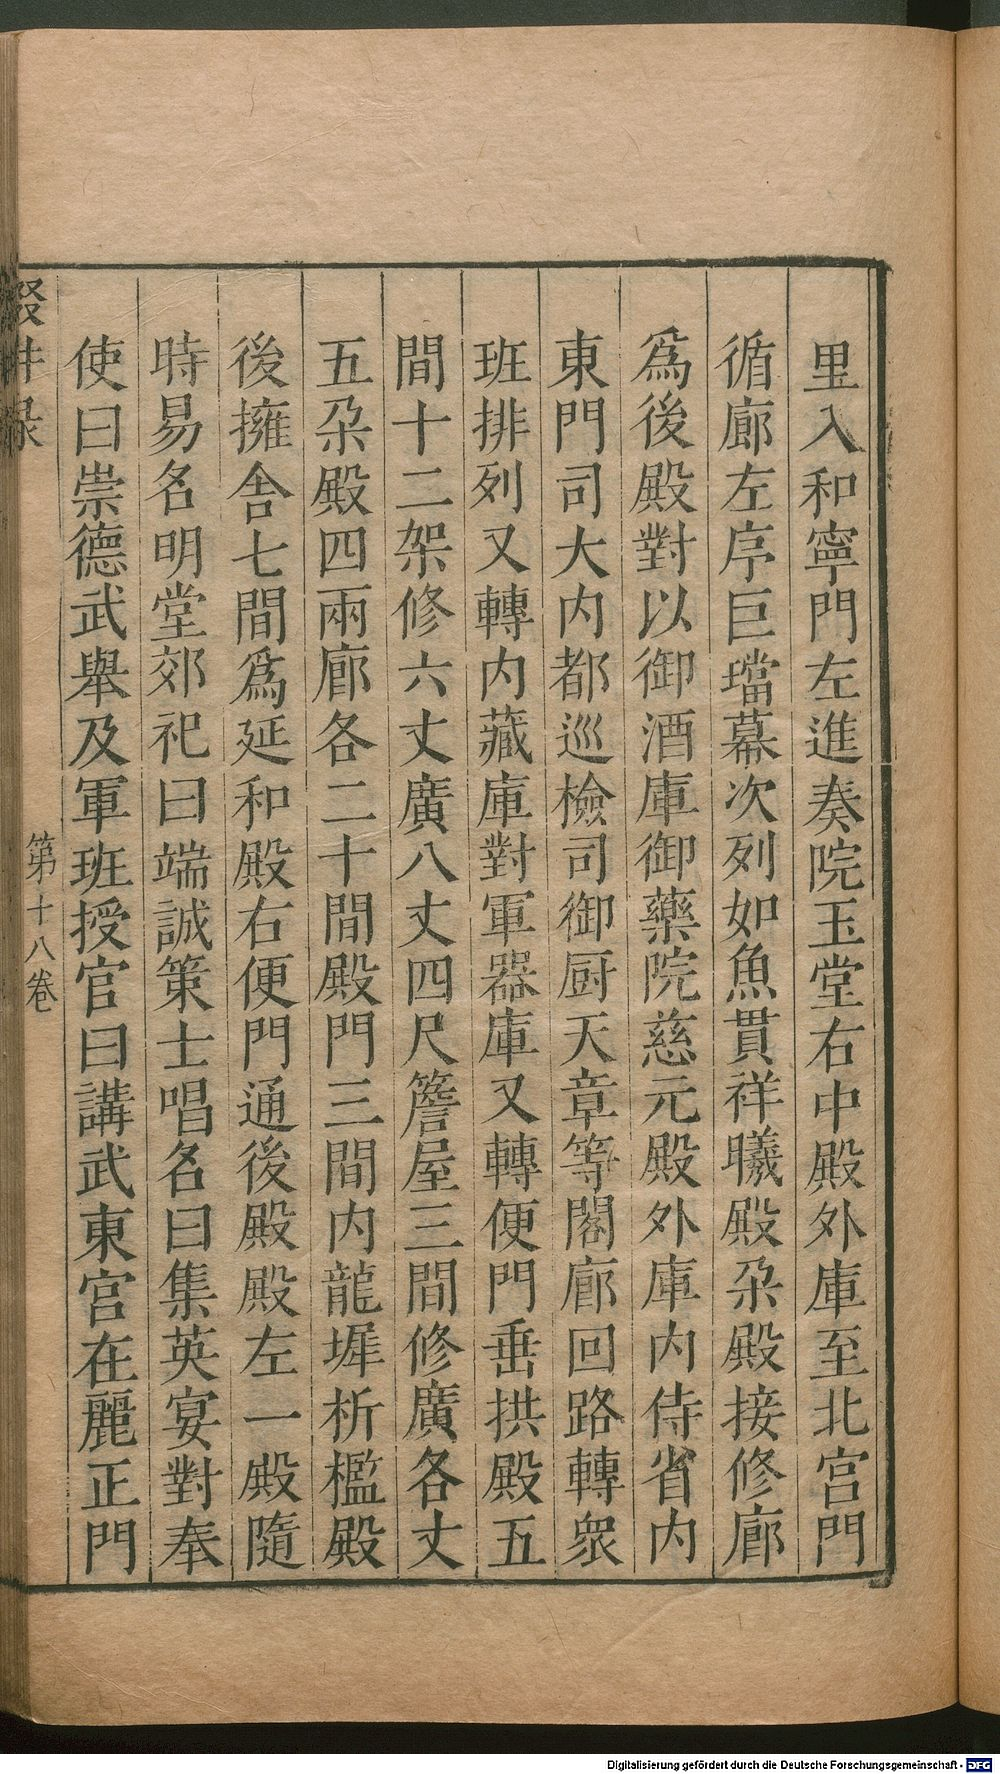 里入和寧門左進奏院玉堂右中殿外庫至北宫門
循廊左序巨璫幕次列如魚貫祥曦殿朶殿接修廊
爲後殿對以御酒庫御藥院慈元殿外庫内侍省内
東門司大内都巡檢司御厨天章等閣廊回路轉衆
班排列又轉内藏庫對軍器庫又轉便門垂拱殿五
間十二架修六丈廣八丈四尺簷屋三間修廣各丈
五朶殿四兩廊各二十間殿門三間内龍墀析檻殿
後擁舎七間爲延和殿右便門通後殿殿左一殿隨
時易名明堂郊祀曰端誠策士唱名曰集英宴對奉
使曰崇德武舉及軍班授官曰講武東宫在麗正門
輟耕录
第十八卷
Digitalisierung gefördert durch die Deutsche Forschungsgemeinschaft - DFG